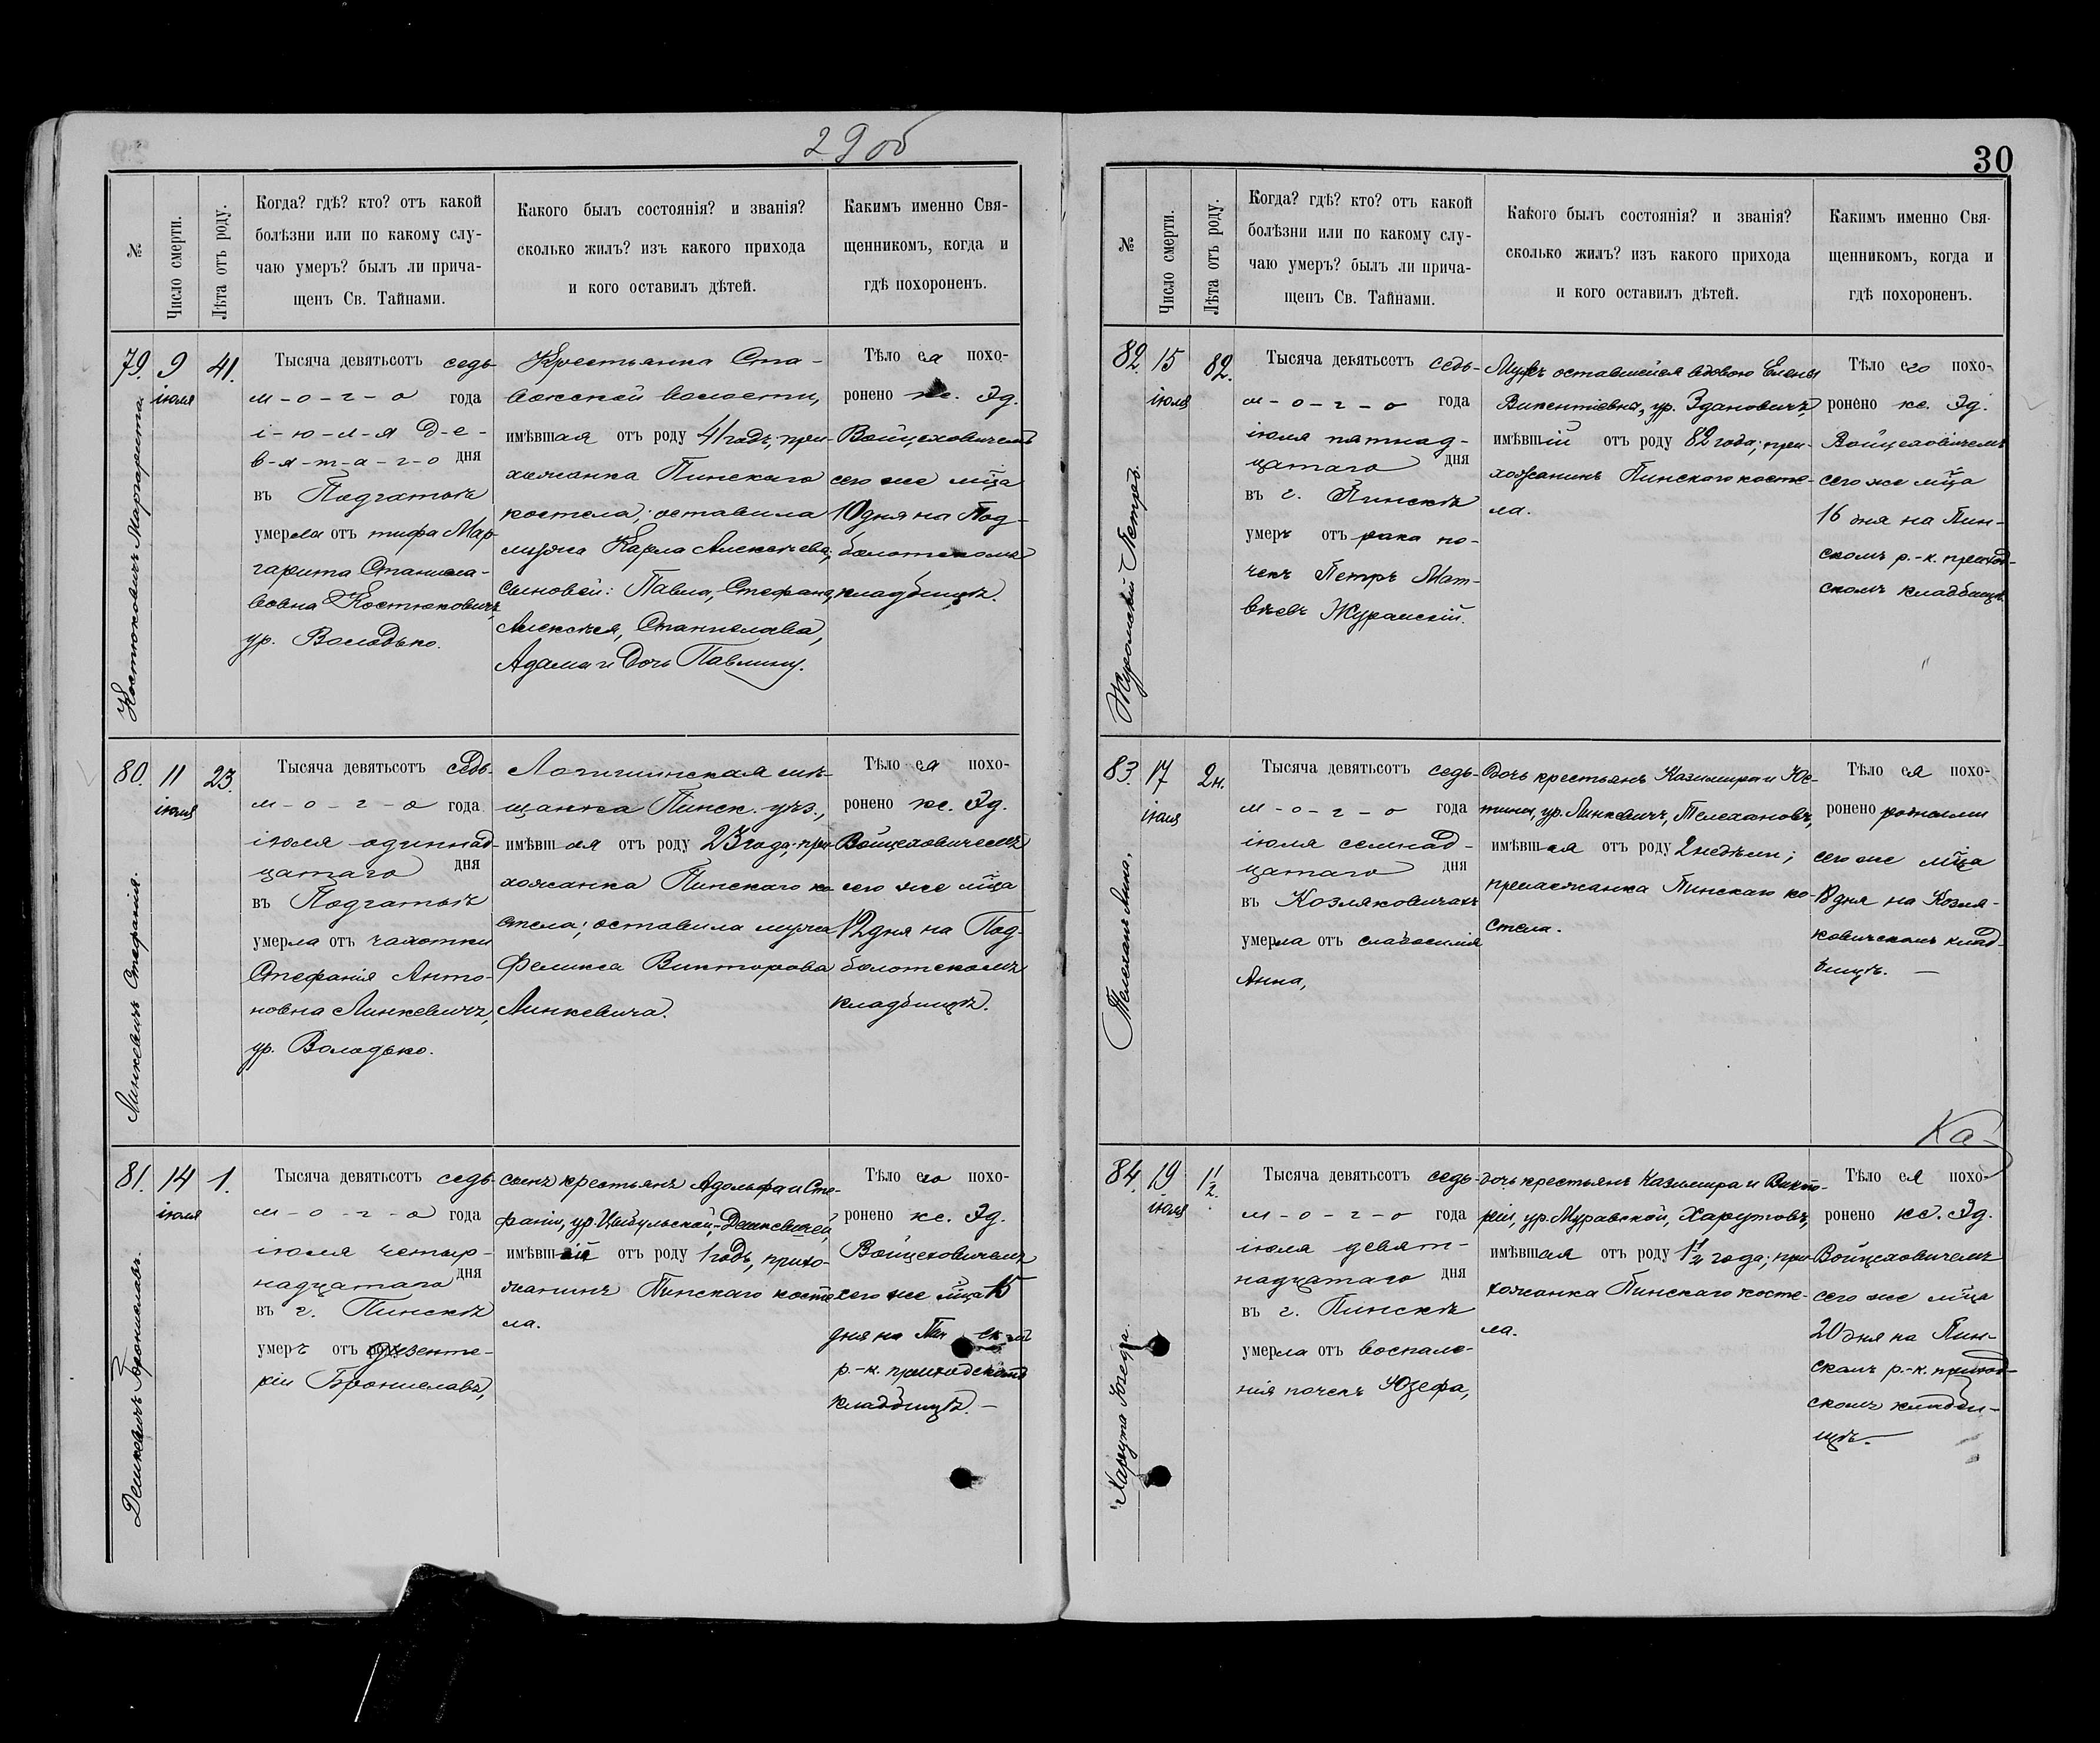 29 об
№
Число смерти.
Лѣта отъ роду.
Когда? гдѣ? кто? отъ какой
болѣзни или по какому слу-
чаю умеръ? былъ ли прича-
щенъ Св. Тайнами.
Какого былъ состоянія? и званія?
сколько жилъ? изъ какого прихода
и кого оставилъ дѣтей.
Какимъ именно Свя-
щенникомъ, когда и
гдѣ похороненъ.
79.
Костюковичъ Маргарита.
9
іюля
41.
Тысяча девятьсотъ седь-
м-о-г-о года
і-ю-л-я д-е-
в-я-т-а-г-о дня
въ Подгатьѣ
умерла отъ тифа Мар-
гарита Станисла-
вовна Костюковичъ,
ур. Володько.
Крестьянка Ста-
вокской волости,
имѣвшая отъ роду 41 годъ; при-
хожанка Пинскаго
костела; оставила
мужа Карла Алексѣева,
сыновей: Павла, Стефана,
Алексѣя, Станислава,
Адама и дочь Павлину.
Тѣло ея похо-
ронено кс. Эд.
Войцеховичемъ
сего же мѣца
10 дня на Под-
болотскомъ
кладбищѣ.
80.
Линкевичъ Стефанія.
11
іюля
23.
Тысяча девятьсотъ седь-
м-о-г-о года
іюля одиннад-
цатаго дня
въ Подгатьѣ
умерла отъ чахотки
Стефанія Анто-
новна Линкевичъ,
ур. Володько.
Логишинская мѣ-
щанка Пинск. уѣз.,
имѣвшая отъ роду 23 года; при-
хожанка Пинскаго ко-
стела; оставила мужа
Феликса Викторова
Линкевича.
Тѣло ея похо-
ронено кс. Эд.
Войцеховичемъ
сего же мѣца
12 дня на Под-
болотскомъ
кладбищѣ.
81.
Дешкевичъ Брониславъ.
14
іюля
1.
Тысяча девятьсотъ седь-
м-о-г-о года
іюля четыр-
надцатаго дня
въ г. Пинскѣ
умеръ отъ дизенте-
ріи Брониславъ,
сынъ крестьянъ Адольфа и Сте-
фаніи, ур. Цыбульской, Дешкевичей,
имѣвшій отъ роду 1 годъ, прихо-
жанинъ Пинскаго косте-
ла.
Тѣло его похо-
ронено кс. Эд.
Войцеховичемъ
сего же мѣца 15
дня на
р.-к. приходскомъ
кладбищѣ. —
30
№
Число смерти.
Лѣта отъ роду.
Когда? гдѣ? кто? отъ какой
болѣзни или по какому слу-
чаю умеръ? былъ ли прича-
щенъ Св. Тайнами.
Какого былъ состоянія? и званія?
сколько жилъ? изъ какого прихода
и кого оставилъ дѣтей.
Какимъ именно Свя-
щенникомъ, когда и
гдѣ похороненъ.
82.
Журомскій Петръ.
15
іюля
82.
Тысяча девятьсотъ седь-
м-о-г-о года
іюля пятнад-
цатаго дня
въ г. Пинскѣ
умеръ отъ рака по-
чекъ Петръ Мат-
вѣевъ Журомскій.
Мужъ оставшейся вдовою Елены
Викентіевны, ур. Здановичъ,
имѣвшій отъ роду 82 года; при-
хожанинъ Пинскаго косте-
ла.
Тѣло его похо-
ронено кс. Эд.
Войцеховичемъ
сего же мѣца
16 дня на Пин-
скомъ р.-к. приход-
скомъ кладбищѣ.
83.
Телехань Анна.
17
іюля
2 н.
Тысяча девятьсотъ седь-
м-о-г-о года
іюля семнад-
цатаго дня
въ Козляковичахъ
умерла отъ слабосилія
Анна,
дочь крестьянъ Казимира и Юс-
тины, ур. Линкевичъ, Телехановъ,
имѣвшая отъ роду 2 недѣли;
прихожанка Пинскаго ко-
стела.
Тѣло ея похо-
ронено родными
сего же мѣца
18 дня на Козля-
ковичскомъ клад-
бищѣ. —
84.
Харута Юзефа.
19
іюля
1½.
Тысяча девятьсотъ седь-
м-о-г-о года
іюля девят-
надцатаго дня
въ г. Пинскѣ
умерла отъ воспале-
нія почекъ Юзефа,
дочь крестьянъ Казимира и Викто-
ріи, ур. Муравской, Харутовъ,
имѣвшая отъ роду 1½ года; при-
хожанка Пинскаго косте-
ла.
Ка-
Тѣло ея похо-
ронено кс. Эд.
Войцеховичемъ
сего же мѣца
20 дня на Пин-
скомъ р.-к. приход-
скомъ кладби-
щѣ.